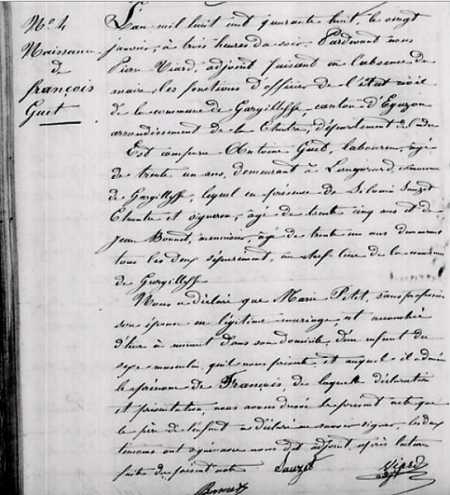 N.º 4
Naissance
de
françois
Guet
L'an mil huit cent quarante huit, le vingt
janvier, à trois heures du soir, Pardevant nous
Pierre Viard, adjoint, faisant en l'absence du
maire, les fonctions d'officier de l'état civil
de la commune de Gargillesse, canton d'Eguzon
arrondissement de la Châtre, département de l'indre
Est comparu Antoine Guet, laboureur, âgé
de trente un ans, demeurant à commune
de Gargillesse, lequel en présence de
et vigneron, âgé de trente cinq ans et de
jean menuisier, âgé de trente un ans demeurant
tous les deux séparément, au chef-lieu de la commune
de Gargillesse
Nous a déclaré que Marie Petit, sans profession
son épouse en légitime mariage, est accouchée
d'hier à minuit dans son domicile, d'un enfant du
sexe masculin, qu'il nous présente, et auquel il a donné
le prénom de François, de laquelle déclaration
et présentation, nous avons dressé le présent acte que
le père de l'enfant a déclaré ne savoir signer, les deux
témoins ont signé avec nous dit adjoint, après lecture
faite du présent acte
Viard